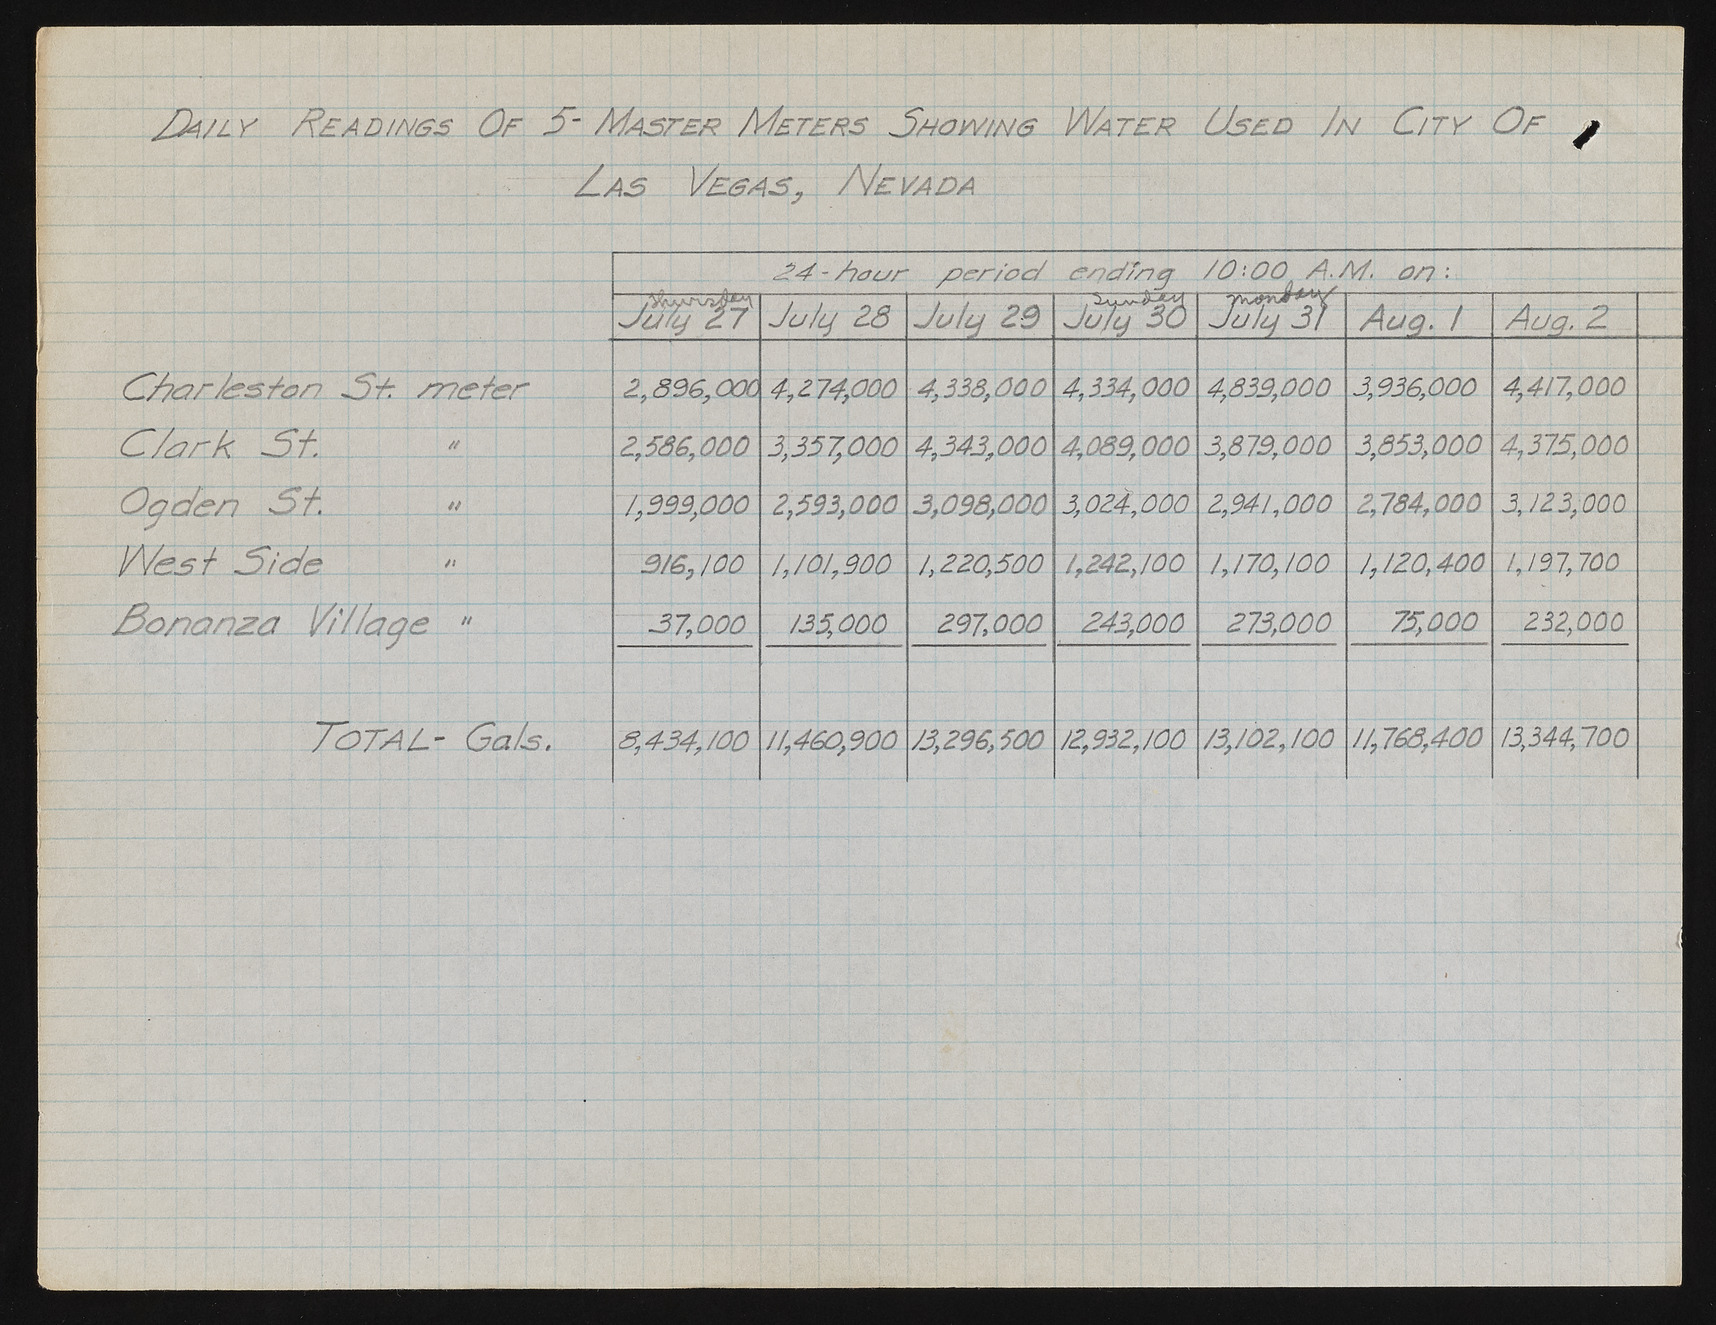 DAILY READINGS OF 5- MASTER METERS SHOWING WATER USED IN CITY OF
LAS VEGAS, NEVADA
24-hour period ending 10:00 A.M. on:
Thursday Sunday Monday
July 27 July 28 July 29 July 30 July 31 Aug. 1 Aug. 2
Charleston St. meter 2,896,000 4,274,000 4,338,000 4,334,000 4,839,000 3,936,000 4,417,000
Clark St. " 2,586,000 3,357,000 4,343,000 4,089,000 3,879,000 3,853,000 4,375,000
Ogden St. " 1,999,000 2,593,000 3,098,000 3,024,000 2,941,000 2,784,000 3,123,000
West Side " 916,100 1,101,900 1,220,500 1,242,100 1,170,100 1,120,400 1,197,700
Bonanza Village " 37,000 135,000 297,000 243,000 273,000 75,000 232,000
TOTAL- Gals. 8,434,100 11,460,900 13,296,500 12,932,100 13,102,100 11,768,400 13,344,700